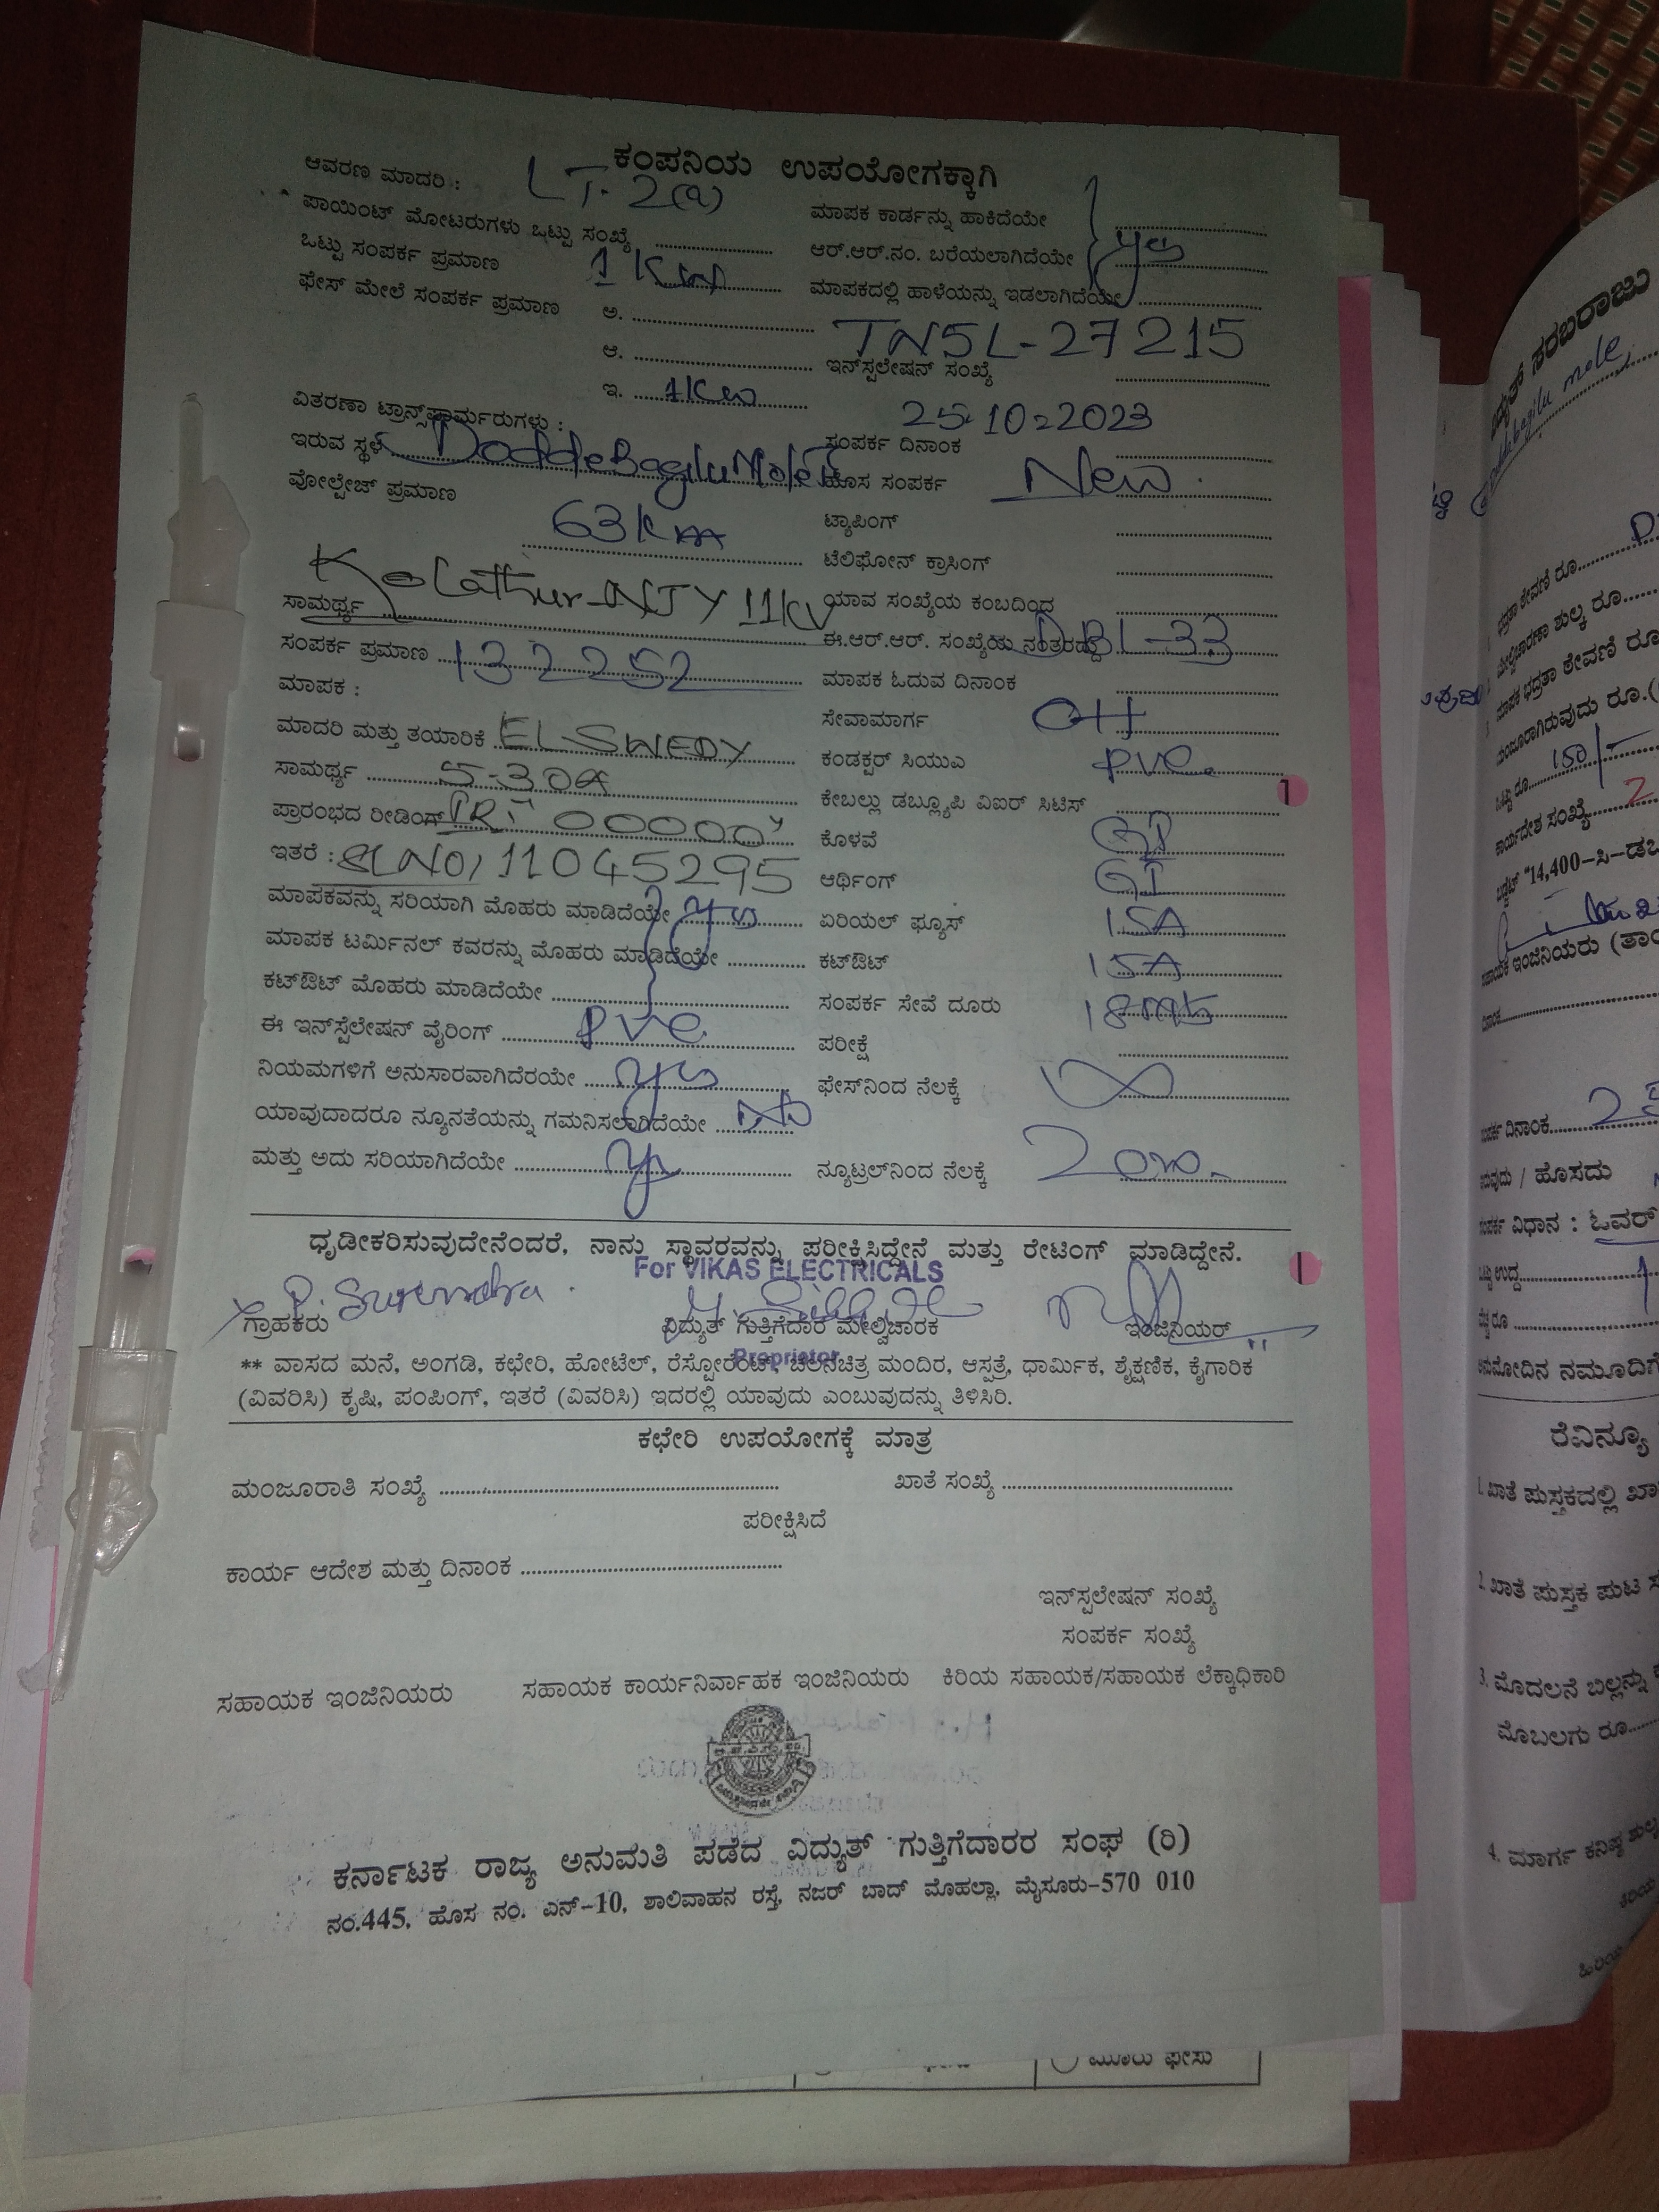 ಕಂಪನಿಯ ಉಪಯೋಗಕ್ಕಾಗಿ
ಆವರಣ ಮಾದರಿ : LT-2(a)
ಪಾಯಿಂಟ್ ಮೋಟರುಗಳು ಒಟ್ಟು ಸಂಖ್ಯೆ
ಒಟ್ಟು ಸಂಪರ್ಕ ಪ್ರಮಾಣ 1 Kw
ಫೇಸ್ ಮೇಲೆ ಸಂಪರ್ಕ ಪ್ರಮಾಣ ಅ.
ಆ.
ಇ. 1Kw
ವಿತರಣಾ ಟ್ರಾನ್ಸ್‌ಫಾರ್ಮರುಗಳು :
ಇರುವ ಸ್ಥಳ DoddeBagiluMole
ವೋಲ್ಟೇಜ್ ಪ್ರಮಾಣ
63
Kolathur-NJY 11KV
ಸಾಮರ್ಥ್ಯ
ಸಂಪರ್ಕ ಪ್ರಮಾಣ 132252
ಮಾಪಕ :
ಮಾದರಿ ಮತ್ತು ತಯಾರಿಕೆ EL-SWEDY
ಸಾಮರ್ಥ್ಯ 5-30A
ಪ್ರಾರಂಭದ ರೀಡಿಂಗ್ IR: 00000
ಇತರೆ : SLNO/11045295
ಮಾಪಕವನ್ನು ಸರಿಯಾಗಿ ಮೊಹರು ಮಾಡಿದೆಯೇ yes
ಮಾಪಕ ಟರ್ಮಿನಲ್ ಕವರನ್ನು ಮೊಹರು ಮಾಡಿದೆಯೇ
ಕಟ್‌ಔಟ್ ಮೊಹರು ಮಾಡಿದೆಯೇ
ಈ ಇನ್‌ಸ್ಟೆಲೇಷನ್ ವೈರಿಂಗ್ PVC
ನಿಯಮಗಳಿಗೆ ಅನುಸಾರವಾಗಿದೆರಯೇ yes
ಯಾವುದಾದರೂ ನ್ಯೂನತೆಯನ್ನು ಗಮನಿಸಲಾಗಿದೆಯೇ No
ಮತ್ತು ಅದು ಸರಿಯಾಗಿದೆಯೇ yes
ಮಾಪಕ ಕಾರ್ಡನ್ನು ಹಾಕಿದೆಯೇ
ಆರ್.ಆರ್.ನಂ. ಬರೆಯಲಾಗಿದೆಯೇ yes
ಮಾಪಕದಲ್ಲಿ ಹಾಳೆಯನ್ನು ಇಡಲಾಗಿದೆಯೇ
TNSL-27215
ಇನ್‌ಸ್ಪಲೇಷನ್ ಸಂಖ್ಯೆ
25-10-2023
ಸಂಪರ್ಕ ದಿನಾಂಕ
ಹೊಸ ಸಂಪರ್ಕ New
ಟ್ಯಾಪಿಂಗ್
ಟೆಲಿಫೋನ್ ಕ್ರಾಸಿಂಗ್
ಯಾವ ಸಂಖ್ಯೆಯ ಕಂಬದಿಂದ
ಈ.ಆರ್.ಆರ್. ಸಂಖ್ಯೆಯ ನಂತರಹದ್ದ DBL-33
ಮಾಪಕ ಓದುವ ದಿನಾಂಕ
ಸೇವಾಮಾರ್ಗ OH
ಕಂಡಕ್ಟರ್ ಸಿಯುಎ PVC
ಕೇಬಲ್ಲು ಡಬ್ಲ್ಯೂಪಿ ವಿಐರ್ ಸಿಟಿಸ್
ಕೊಳವೆ GI
ಆರ್ಥಿಂಗ್ GI
ಏರಿಯಲ್ ಫ್ಯೂಸ್ 15A
ಕಟ್‌ಔಟ್ 15A
ಸಂಪರ್ಕ ಸೇವೆ ದೂರು 18mts
ಪರೀಕ್ಷೆ
ಫೇಸ್‌ನಿಂದ ನೆಲಕ್ಕೆ ∞
ನ್ಯೂಟ್ರಲ್‌ನಿಂದ ನೆಲಕ್ಕೆ
ಧೃಡೀಕರಿಸುವುದೇನೆಂದರೆ, ನಾನು ಸ್ಥಾವರವನ್ನು ಪರೀಕ್ಷಿಸಿದ್ದೇನೆ ಮತ್ತು ರೇಟಿಂಗ್ ಮಾಡಿದ್ದೇನೆ.
For VIKAS ELECTRICALS
P. Surendra
ಗ್ರಾಹಕರು ವಿದ್ಯುತ್ ಗುತ್ತಿಗೆದಾರ ಮೇಲ್ವಿಚಾರಕ ಇಂಜಿನಿಯರ್
Proprietor
** ವಾಸದ ಮನೆ, ಅಂಗಡಿ, ಕಛೇರಿ, ಹೋಟೆಲ್, ರೆಸ್ಟೋರೆಂಟ್, ಚಲನಚಿತ್ರ ಮಂದಿರ, ಆಸ್ಪತ್ರೆ, ಧಾರ್ಮಿಕ, ಶೈಕ್ಷಣಿಕ, ಕೈಗಾರಿಕ
(ವಿವರಿಸಿ) ಕೃಷಿ, ಪಂಪಿಂಗ್, ಇತರೆ (ವಿವರಿಸಿ) ಇದರಲ್ಲಿ ಯಾವುದು ಎಂಬುವುದನ್ನು ತಿಳಿಸಿರಿ.
ಕಛೇರಿ ಉಪಯೋಗಕ್ಕೆ ಮಾತ್ರ
ಮಂಜೂರಾತಿ ಸಂಖ್ಯೆ ಖಾತೆ ಸಂಖ್ಯೆ
ಪರೀಕ್ಷಿಸಿದೆ
ಕಾರ್ಯ ಆದೇಶ ಮತ್ತು ದಿನಾಂಕ
ಇನ್‌ಸ್ಪಲೇಷನ್ ಸಂಖ್ಯೆ
ಸಂಪರ್ಕ ಸಂಖ್ಯೆ
ಸಹಾಯಕ ಇಂಜಿನಿಯರು ಸಹಾಯಕ ಕಾರ್ಯನಿರ್ವಾಹಕ ಇಂಜಿನಿಯರು ಕಿರಿಯ ಸಹಾಯಕ/ಸಹಾಯಕ ಲೆಕ್ಕಾಧಿಕಾರಿ
ಕರ್ನಾಟಕ ರಾಜ್ಯ ಅನುಮತಿ ಪಡೆದ ವಿದ್ಯುತ್ ಗುತ್ತಿಗೆದಾರರ ಸಂಘ (ರಿ)
ನಂ.445, ಹೊಸ ನಂ. ಎನ್-10, ಶಾಲಿವಾಹನ ರಸ್ತೆ, ನಜರ್ ಬಾದ್ ಮೊಹಲ್ಲಾ, ಮೈಸೂರು-570 010
ಮೂರು ಫೇಸು
ವಿದ್ಯುತ್ ಸರಬರಾಜು
Doddabagilu mole
150/-
ಕಾರ್ಯದೇಶ ಸಂಖ್ಯೆ 2
ಇಂಜಿನಿಯರು
ಸಂಪರ್ಕ ದಿನಾಂಕ
/ ಹೊಸದು
ವಿಧಾನ : ಓವರ್
ರೆವಿನ್ಯೂ
1. ಖಾತೆ ಪುಸ್ತಕದಲ್ಲಿ
2. ಖಾತೆ ಪುಸ್ತಕ ಪುಟ
3. ಮೊದಲನೆ ಬಿಲ್ಲನ್ನು
ಮೊಬಲಗು ರೂ
4. ಮಾರ್ಗ ಕನಿಷ್ಠ